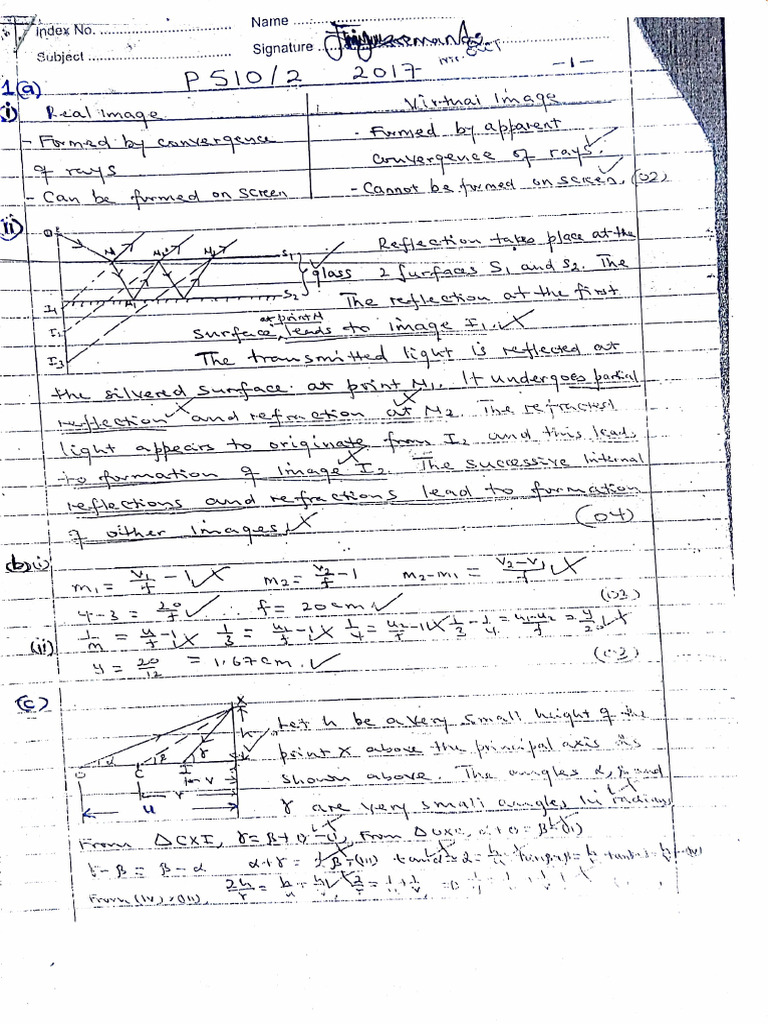 Index No. ........................ Name ........................
Subject ........................ Signature ........................
P510/2 2017 -1-
1(a)
(i) Real Image
- Formed by convergence
of rays
- Can be formed on screen
Virtual Image
- Formed by apparent
convergence of rays.
- Cannot be formed on screen. (02)
(ii) Reflection takes place at the
glass 2 surfaces S1 and S2. The
The reflection at the first
surface, at point N leads to image I1.
The transmitted light is reflected at
the silvered surface at point M1. It undergoes partial
reflection and refraction at N2. The refracted
light appears to originate from I2 and this leads
to formation of image I2. The successive internal
reflections and refractions lead to formation
of oither images.
(04)
(b)(i) m1 = v1/f - 1 m2 = v2/f - 1 m2-m1 = v2-v1/f
4-3 = 20/f ∴ f = 20cm (03)
(ii) 1/m = u/f - 1 1/3 = u1/f - 1 1/4 = u2/f - 1 1/3 - 1/4 = u1-u2/f = y/20
y = 20/12 = 1.67cm. (03)
(c) Let h be a very small height of the
point X above the principal axis as
shown above. The angles α, β and
γ are very small angles in radians
From ΔCXI, γ = β + θ -(i), From ΔOXC, α + θ = β -(ii)
γ - β = β - α α + γ = 2β -(iii)